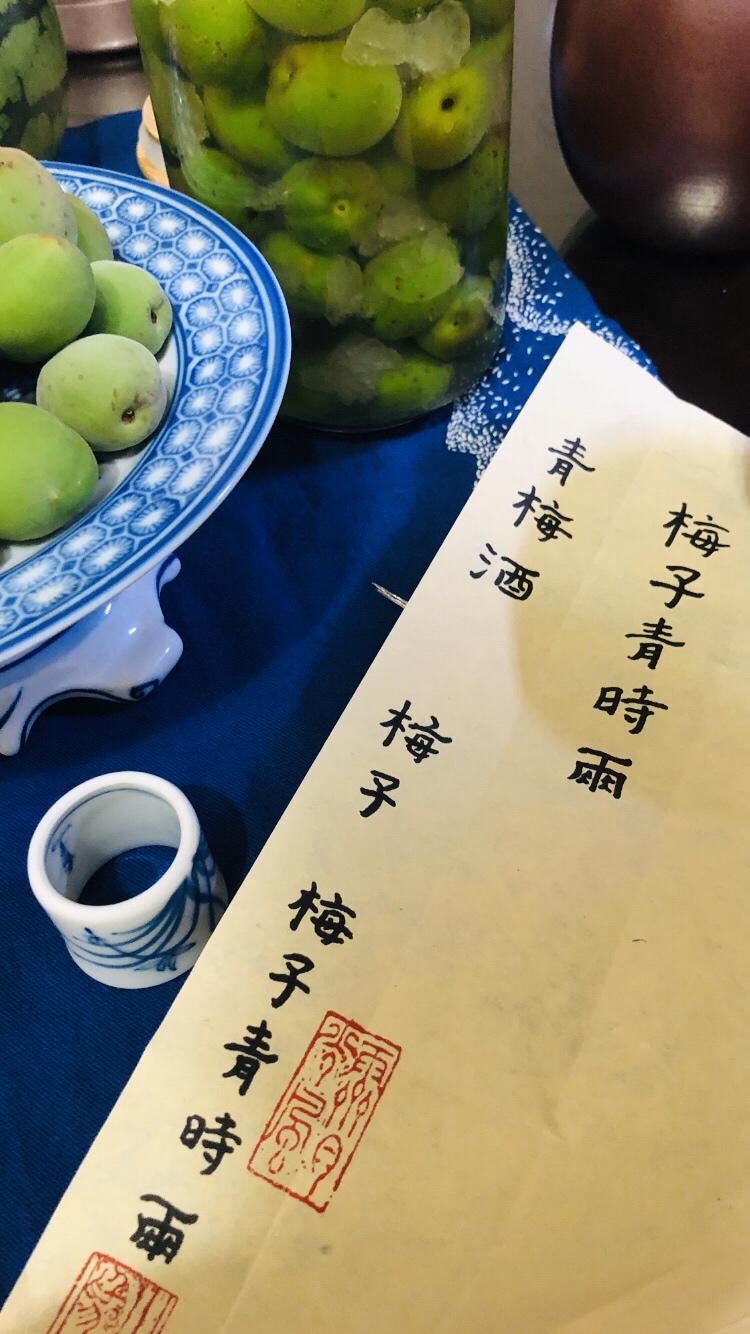 梅子青時雨
青梅酒
梅子
梅子青時雨